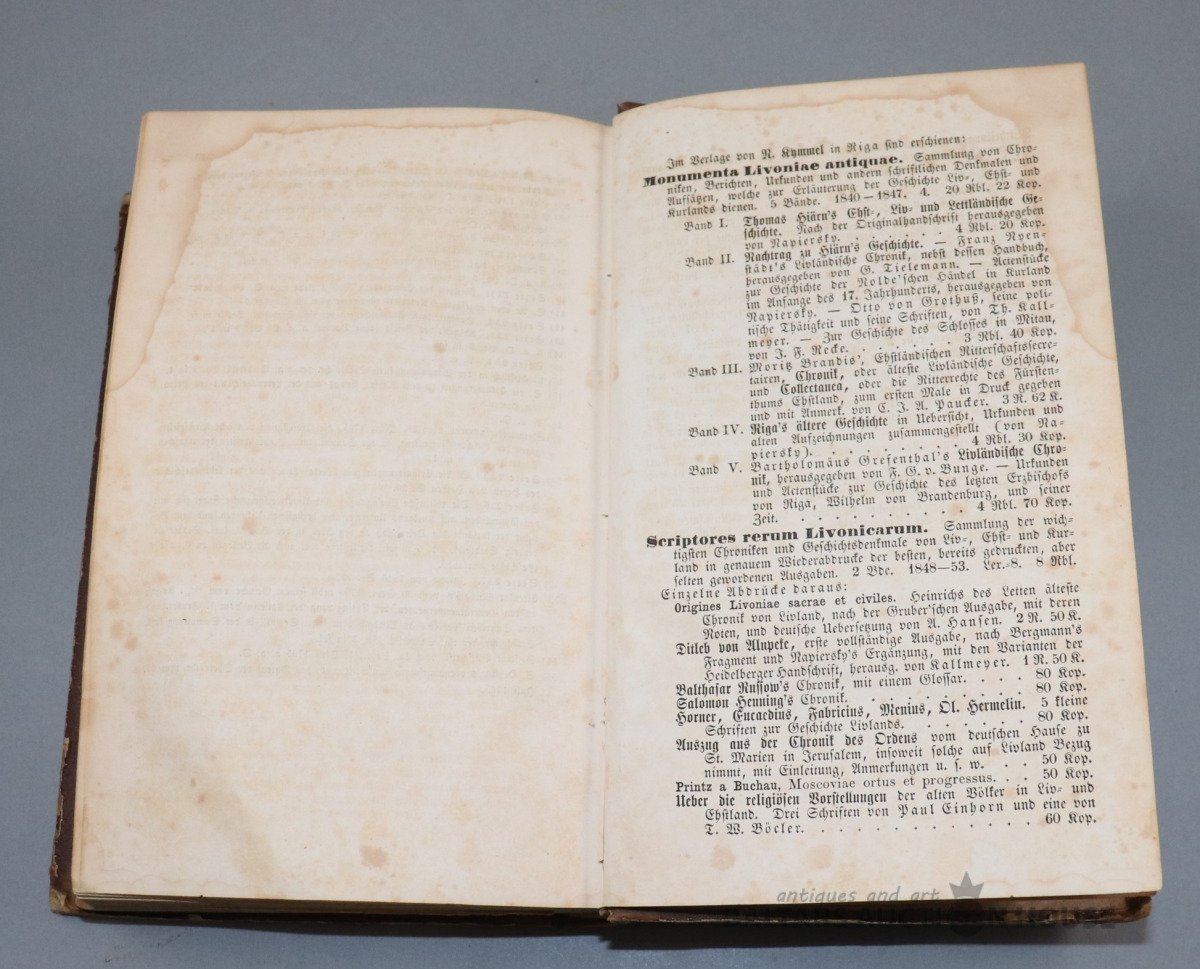 Im Verlage von N. Kymmel in Riga sind erschienen:
Monumenta Livoniae antiquae. Sammlung von Chro-
niken, Berichten, Urkunden und andern schriftlichen Denkmalen und
Aufsätzen, welche zur Erläuterung der Geschichte Liv-, Ehst- und
Kurlands dienen. 5 Bände. 1840—1847. 4. 20 Rbl. 22 Kop.
Band I. Thomas Hiärn's Ehst-, Liv- und Lettländische Ge-
schichte. Nach der Originalhandschrift herausgegeben
von Napiersky. . . . . . . . 4 Rbl. 20 Kop.
Band II. Nachtrag zu Hiärn's Geschichte. — Franz Nyen-
städt's Livländische Chronik, nebst dessen Handbuch,
herausgegeben von G. Tielemann. — Actenstücke
zur Geschichte der Nolde'schen Händel in Kurland
im Anfange des 17. Jahrhunderts, herausgegeben von
Napiersky. — Otto von Grothuß, seine poli-
tische Thätigkeit und seine Schriften, von Th. Kall-
meyer. — Zur Geschichte des Schlosses in Mitau,
von J. F. Recke. . . . . . . 3 Rbl. 40 Kop.
Band III. Moritz Brandis', Ehstländischen Ritterschaftssecre-
tairen, Chronik, oder älteste Livländische Geschichte,
und Collectanea, oder die Ritterrechte des Fürsten-
thums Ehstland, zum ersten Male in Druck gegeben
und mit Anmerk. von C. J. A. Paucker. 3 R. 62 K.
Band IV. Riga's ältere Geschichte in Uebersicht, Urkunden und
alten Aufzeichnungen zusammengestellt (von Na-
piersky). . . . . . . . . 4 Rbl. 30 Kop.
Band V. Bartholomäus Grefenthal's Livländische Chro-
nik, herausgegeben von F. G. v. Bunge. — Urkunden
und Actenstücke zur Geschichte des letzten Erzbischofs
von Riga, Wilhelm von Brandenburg, und seiner
Zeit. . . . . . . . . . 4 Rbl. 70 Kop.
Scriptores rerum Livonicarum. Sammlung der wich-
tigsten Chroniken und Geschichtsdenkmale von Liv-, Ehst- und Kur-
land in genauem Wiederabdrucke der besten, bereits gedruckten, aber
selten gewordenen Ausgaben. 2 Bde. 1848—53. Lex.-8. 8 Rbl.
Einzelne Abdrücke daraus:
Origines Livoniae sacrae et civiles. Heinrichs des Letten älteste
Chronik von Livland, nach der Gruber'schen Ausgabe, mit deren
Noten, und deutsche Uebersetzung von A. Hansen. 2 R. 50 K.
Ditleb von Alnpeke, erste vollständige Ausgabe, nach Bergmann's
Fragment und Napiersky's Ergänzung, mit den Varianten der
Heidelberger Handschrift, herausg. von Kallmeyer. 1 R. 50 K.
Balthasar Russow's Chronik, mit einem Glossar. . . . 80 Kop.
Salomon Henning's Chronik. . . . . . . . . 80 Kop.
Horner, Eucaedius, Fabricius, Menius, Ol. Hermelin. 5 kleine
Schriften zur Geschichte Livlands. . . . . . . 80 Kop.
Auszug aus der Chronik des Ordens vom deutschen Hause zu
St. Marien in Jerusalem, insoweit solche auf Livland Bezug
nimmt, mit Einleitung, Anmerkungen u. s. w. . . 50 Kop.
Printz a Buchau, Moscoviae ortus et progressus. . . 50 Kop.
Ueber die religiösen Vorstellungen der alten Völker in Liv- und
Ehstland. Drei Schriften von Paul Einhorn und eine von
T. W. Böcler. . . . . . . . . . . . 60 Kop.
antiques and art
BALTARS AUCTION HOUSE